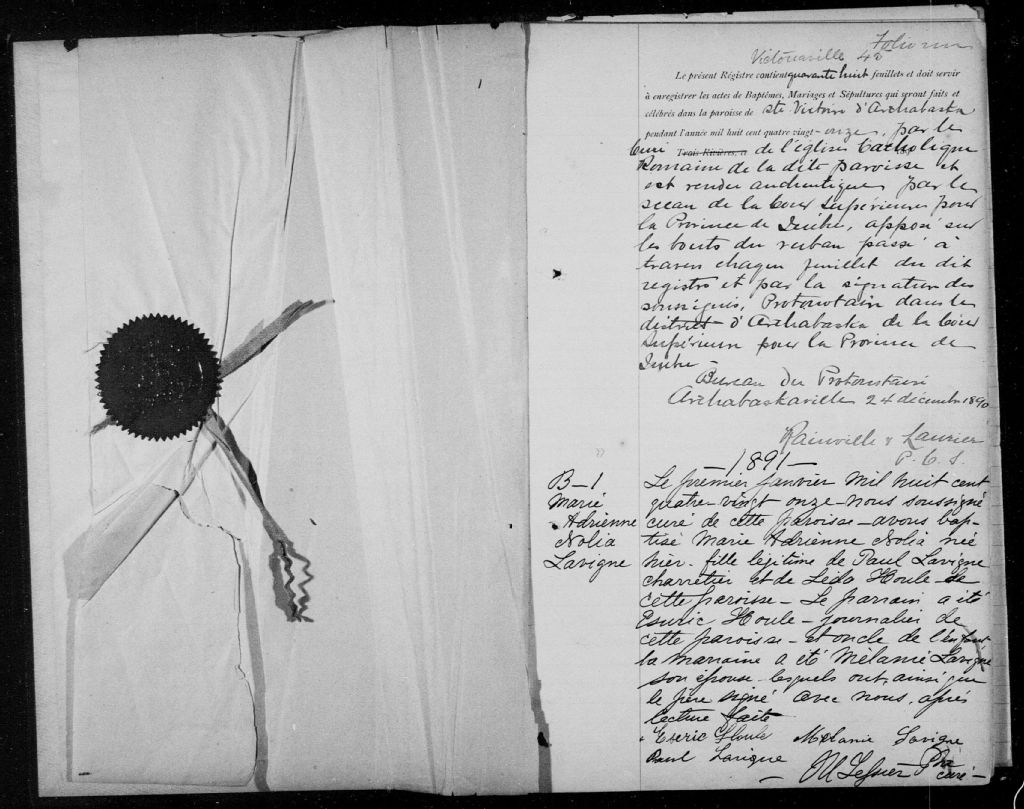 Folio un
Victoriaville 48
Le présent Régistre contient quarante huit feuillets et doit servir
à enregistrer les actes de Baptêmes, Mariages et Sépultures qui seront faits et
célébrés dans la paroisse de Ste Victoire d'Arthabaska
pendant l'année mil huit cent quatre vingt-onze, par le
Curé Trois-Rivières, ce de l'église Catholique
Romaine de la dite paroisse et
est rendu authentique par le
sceau de la Cour Supérieure pour
la Province de Québec, apposé sur
les bouts du ruban passé à
travers chaque feuillet du dit
registre et par la signature des
soussignés, Protonotaire dans le
district d'Arthabaska de la Cour
Supérieure pour la Province de
Québec
Bureau du Protonotaire
Arthabaskaville 24 décembre 1890
Rainville & Laurier
P. C. S.
-1891-
B-1
Marie
Adrienne
Nolia
Lavigne
Le premier janvier mil huit cent
quatre-vingt onze-nous soussigné
curé de cette paroisse-avons bap-
tisé Marie Adrienne Nolia née
hier-fille légitime de Paul Lavigne
charretier et de Léda Houle-de
cette paroisse-Le parrain a été
Esuric Houle-journalier de
cette paroisse-et oncle de l'enfant
la marraine a été Mélanie Lavigne
son épouse-lesquels ont, ainsi que
le père signé avec nous, après
lecture faite
Eseric Houle Mélanie Lavigne
Paul Lavigne
Ptre
curé-